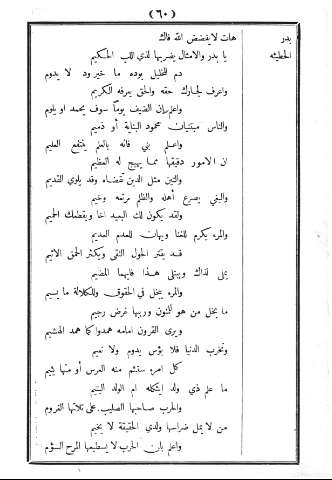 (٦٠)
بدر هات لا يفضض الله فاك
الحطيئه يا بدر والامثال يضربها لذي اللب الحكيم
دم للخليل بوده ما خير ود لا يدوم
واعرف لجارك حقه والحق يعرفه الكريم
واعلم بان الضيف يوما سوف يحمد او يلوم
والناس مبتنيان محمود البناية أو ذميم
واعلم بني فانه بالعلم ينتفع العليم
ان الامور دقيقها مما يهيج له العظيم
والتبل مثل الدين تقضاه وقد يلوي الغريم
والبغي يصرع أهله والظلم مرتعه وخيم
ولقد يكون لك البعيد اخا ويقطعك الحميم
والمرء يكرم للغنا ويهان للعدم العديم
قد يقتر الحول التقى ويكثر الحمق الاثيم
يملى لذاك ويبتلى هذا فايهما المضيم
والمرء يبخل في الحقوق وللكلالة ما يسيم
ما بخل من هو للمنون وريبها غرض رجيم
ويرى القرون امامه همدوا كما همد الهشيم
وتخرب الدنيا فلا بؤس يدوم ولا نعيم
كل امرء ستئيم منه العرس أو منها يئيم
ما علم ذي ولد ايثكله ام الولد اليتيم
والحرب صاحبها الصليب على تلاتلها العزوم
من لا يمل ضراسها ولدى الحقيقة لا يخيم
واعلم بان الحرب لا يسطيعها المرح السؤم